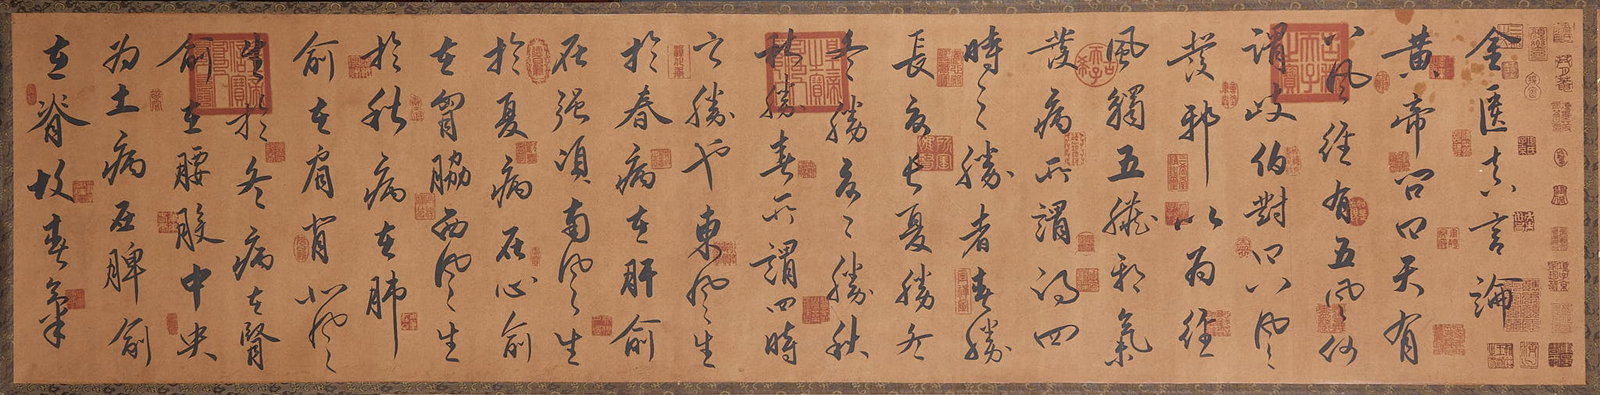 金匱真言論
黃帝问曰天有
八風經有五風何
謂岐伯對曰八風
發邪以為經
風觸五藏邪氣
發病所謂得四
時之勝者春勝
長夏長夏勝冬
冬勝夏夏勝秋
秋勝春所謂四時
之勝也東風生
於春病在肝俞
在頸項南風生
於夏病在心俞
在胷脇西風生
於秋病在肺
俞在肩背北風
生於冬病在腎
俞在腰股中央
為土病在脾俞
在脊故春氣